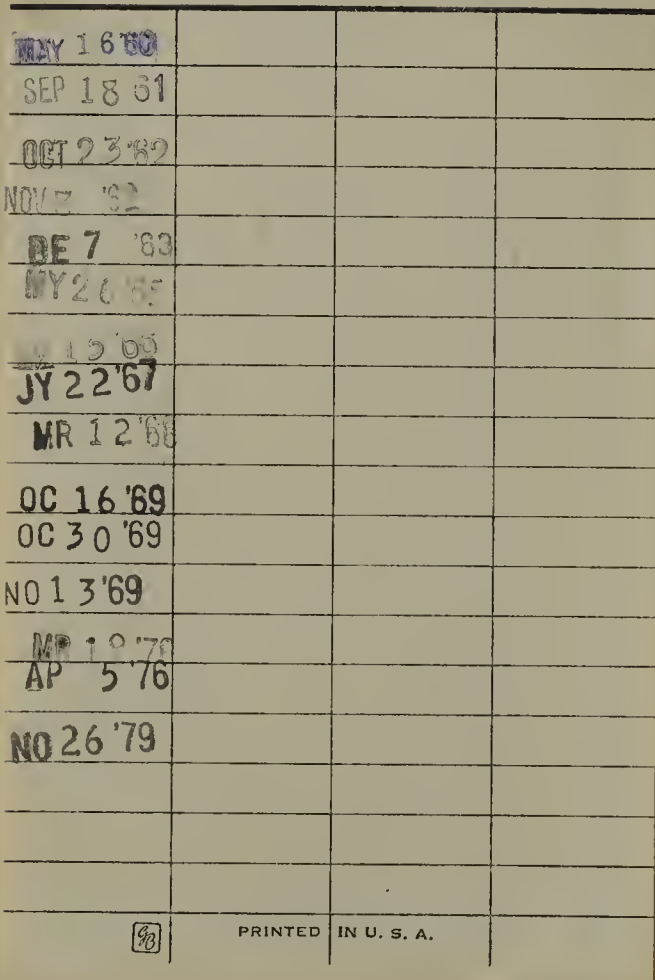 MAY 16 '60
SEP 18 61
OCT 23 '62
NOV '62
DE 7 '63
MY 26
15 '66
JY 22 '67
MR 12 '68
OC 16 '69
OC 30 '69
NO 13 '69
MR '76
AP 5 '76
NO 26 '79
GB
PRINTED IN U. S. A.